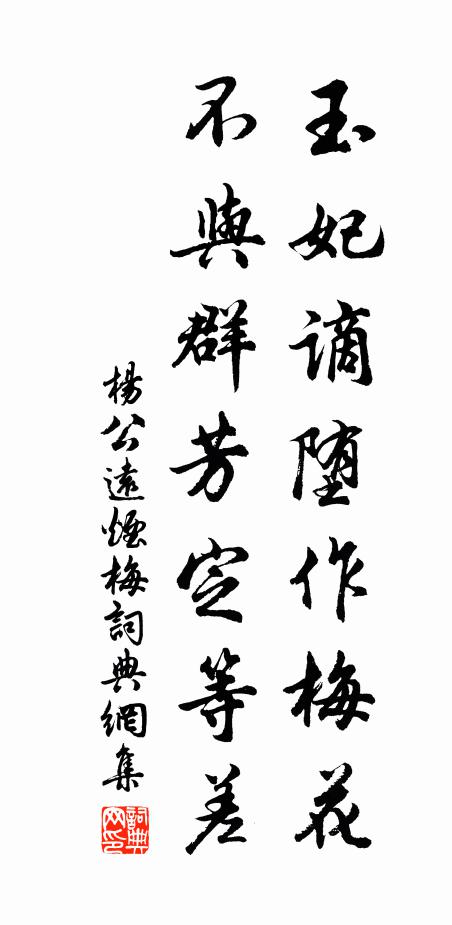 玉妃謫堕作梅花
不與群芳定等差
楊公遠煙梅詞典網集
詞典网印